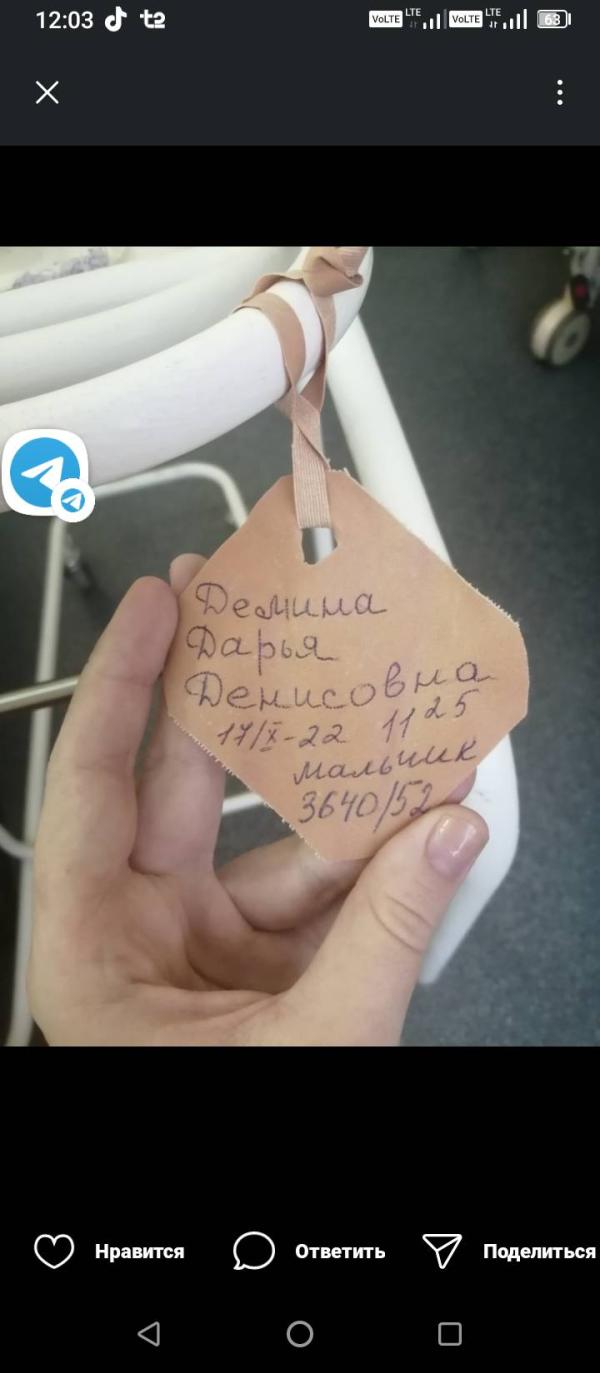 12:03
VoLTE LTE VoLTE LTE 63
Демина
Дарья
Денисовна
17/X-22 11 25
мальчик
3640/52
Нравится Ответить Поделиться